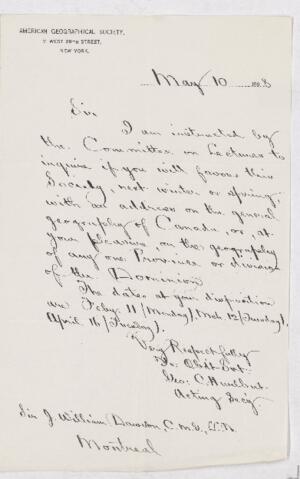 AMERICAN GEOGRAPHICAL SOCIETY,
11 WEST 29TH STREET,
NEW YORK.
May 10 1888
Sir
I am instructed by
the Committee on Lectures to
inquire if you will favor this
Society, next winter or spring,
with an address on the general
geography of Canada, or, at
your pleasure, on the geography
of any one Province or division
of the Dominion
The dates at your disposition
are Feby. 11 (Monday), Mch. 12 (Tuesday),
April 16 (Tuesday).
Very Respectfully
Yr. Obdt Svt.
Geo. C. Hurlbut
Acting Secy.
Sir J. William Dawson, C.M.G., LL.D.
Montreal